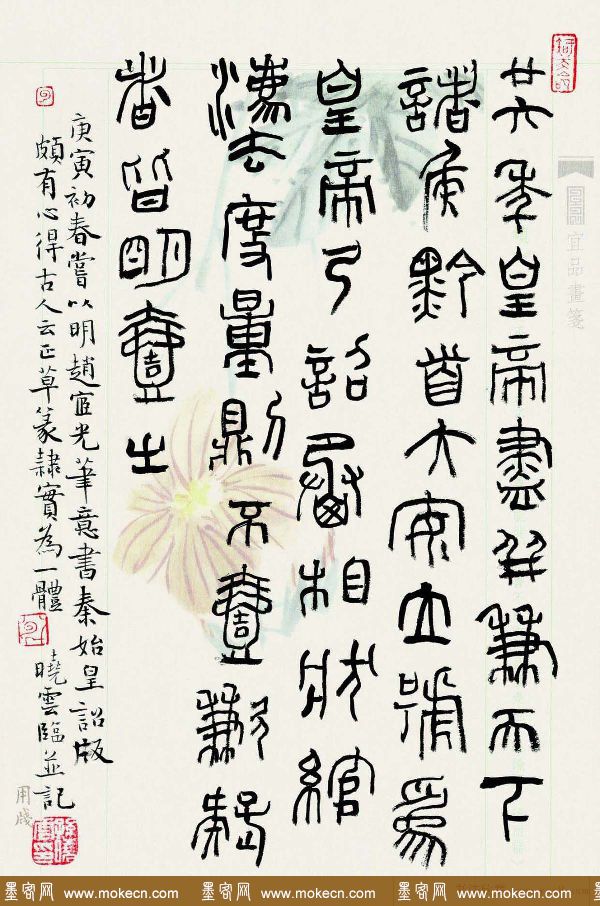 廿六年皇帝盡并兼天下
諸侯黔首大安立號為
皇帝乃詔丞相狀綰
灋度量則不壹歉疑
者皆明壹之
庚寅初春嘗以明趙宧光筆意書秦始皇詔版
頗有心得古人云正草篆隸實為一體 曉雲臨並記
宜品畫箋
用牋
墨客网 www.mokecn.com 墨客网 www.mokecn.com 墨客网 www.mokecn.com